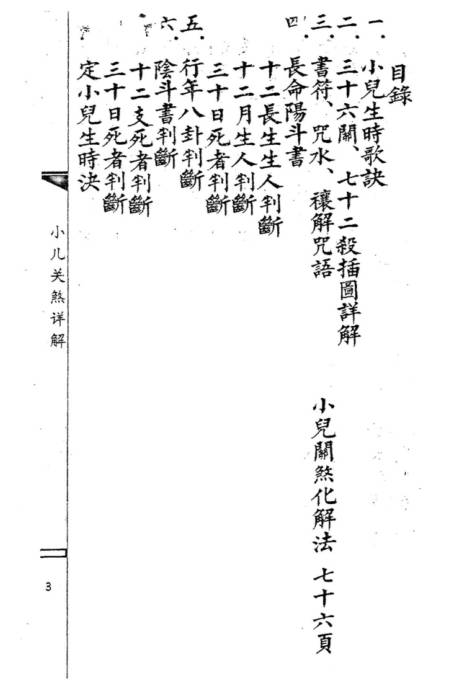 目錄
一．小兒生時歌訣
二．三十六關、七十二殺插圖詳解
三．書符、咒水、禳解咒語
小兒關煞化解法 七十六頁
四．長命陽斗書
十二長生生人判斷
十二月生人判斷
三十日死者判斷
五．行年八卦判斷
六．陰斗書判斷
十二支死者判斷
三十日死者判斷
定小兒生時決
小儿关煞详解
3